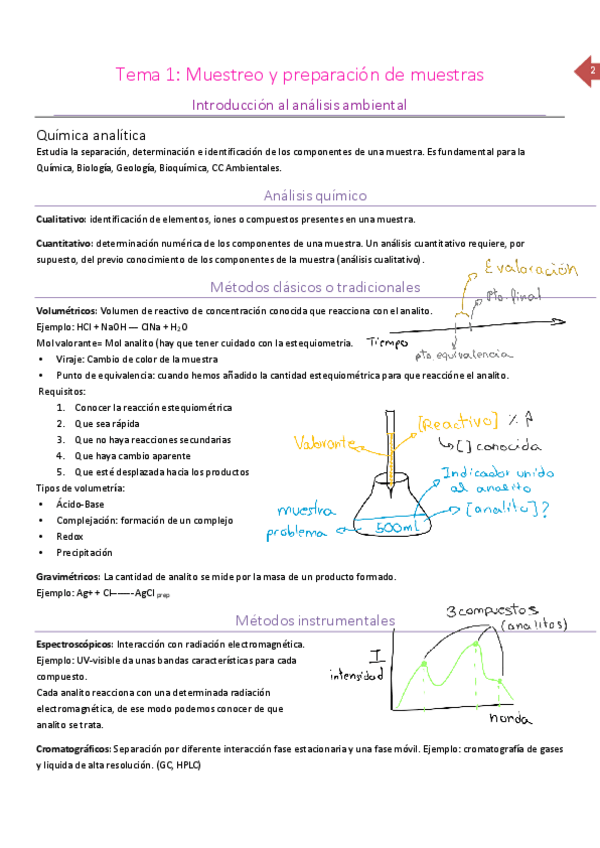 2
Tema 1: Muestreo y preparación de muestras
Introducción al análisis ambiental
Química analítica
Estudia la separación, determinación e identificación de los componentes de una muestra. Es fundamental para la
Química, Biología, Geología, Bioquímica, CC Ambientales.
Análisis químico
Cualitativo: identificación de elementos, iones o compuestos presentes en una muestra.
Cuantitativo: determinación numérica de los componentes de una muestra. Un análisis cuantitativo requiere, por
supuesto, del previo conocimiento de los componentes de la muestra (análisis cualitativo).
Evaloración
Pto. final
Métodos clásicos o tradicionales
Volumétricos: Volumen de reactivo de concentración conocida que reacciona con el analito.
Ejemplo: HCl + NaOH — ClNa + H₂0
Mol valorante= Mol analito (hay que tener cuidado con la estequiometria.
Tiempo
pto equivalencia
• Viraje: Cambio de color de la muestra
• Punto de equivalencia: cuando hemos añadido la cantidad estequiométrica para que reaccióne el analito.
Requisitos:
1. Conocer la reacción estequiométrica
2. Que sea rápida
3. Que no haya reacciones secundarias
4. Que haya cambio aparente
5. Que esté desplazada hacia los productos
Tipos de volumetría:
• Ácido-Base
• Complejación: formación de un complejo
• Redox
• Precipitación
Valorante
[Reactivo]
[] conocida
Indicador unido
al analito
[analito]?
muestra
problema
500ml
Gravimétricos: La cantidad de analito se mide por la masa de un producto formado.
Ejemplo: Ag+ + Cl-------AgCl prep
Métodos instrumentales
Espectroscópicos: Interacción con radiación electromagnética.
Ejemplo: UV-visible da unas bandas características para cada
compuesto.
Cada analito reacciona con una determinada radiación
electromagnética, de ese modo podemos conocer de que
analito se trata.
3 compuestos
(analitos)
I
intensidad
nonda
Cromatográficos: Separación por diferente interacción fase estacionaria y una fase móvil. Ejemplo: cromatografía de gases
y liquida de alta resolución. (GC, HPLC)